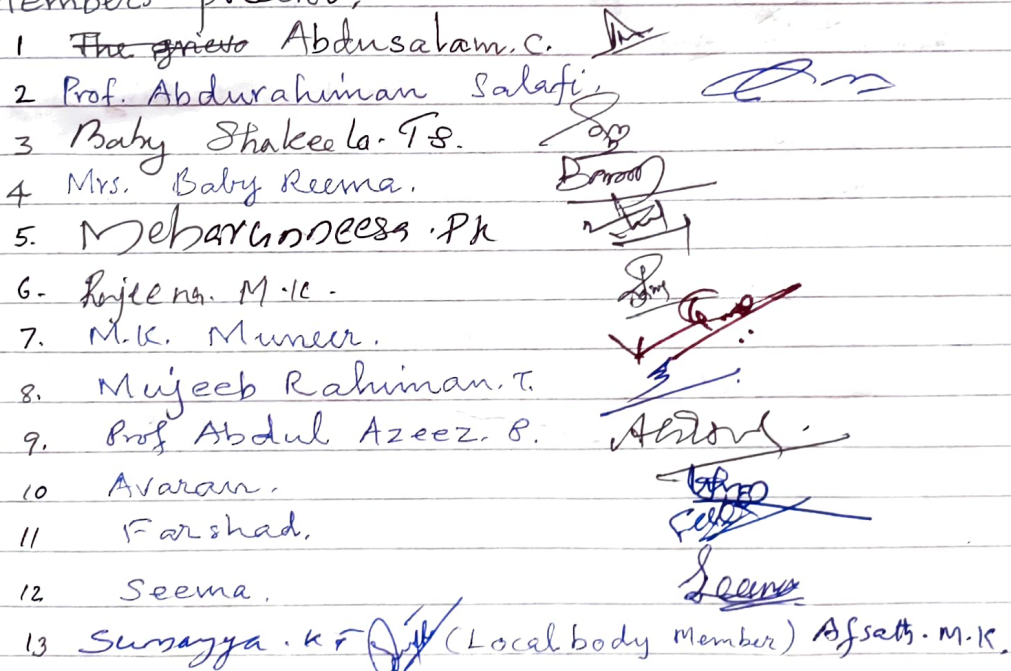 Members present,
1 The grievo Abdusalam. C.
2 Prof. Abdurahiman Salafi.
3 Baby Shakeela. T S.
4 Mrs. Baby Reema.
5. Mebarunneesa. Pk
6- Rajeena. M.K.
7. M.K. Muneer.
8. Mujeeb Rahiman. T.
9. Prof Abdul Azeez. P.
10 Avaran.
11 Farshad.
12 Seema. Seema
13 Sumayya. K T (Local body Member) Afsath. M.K.